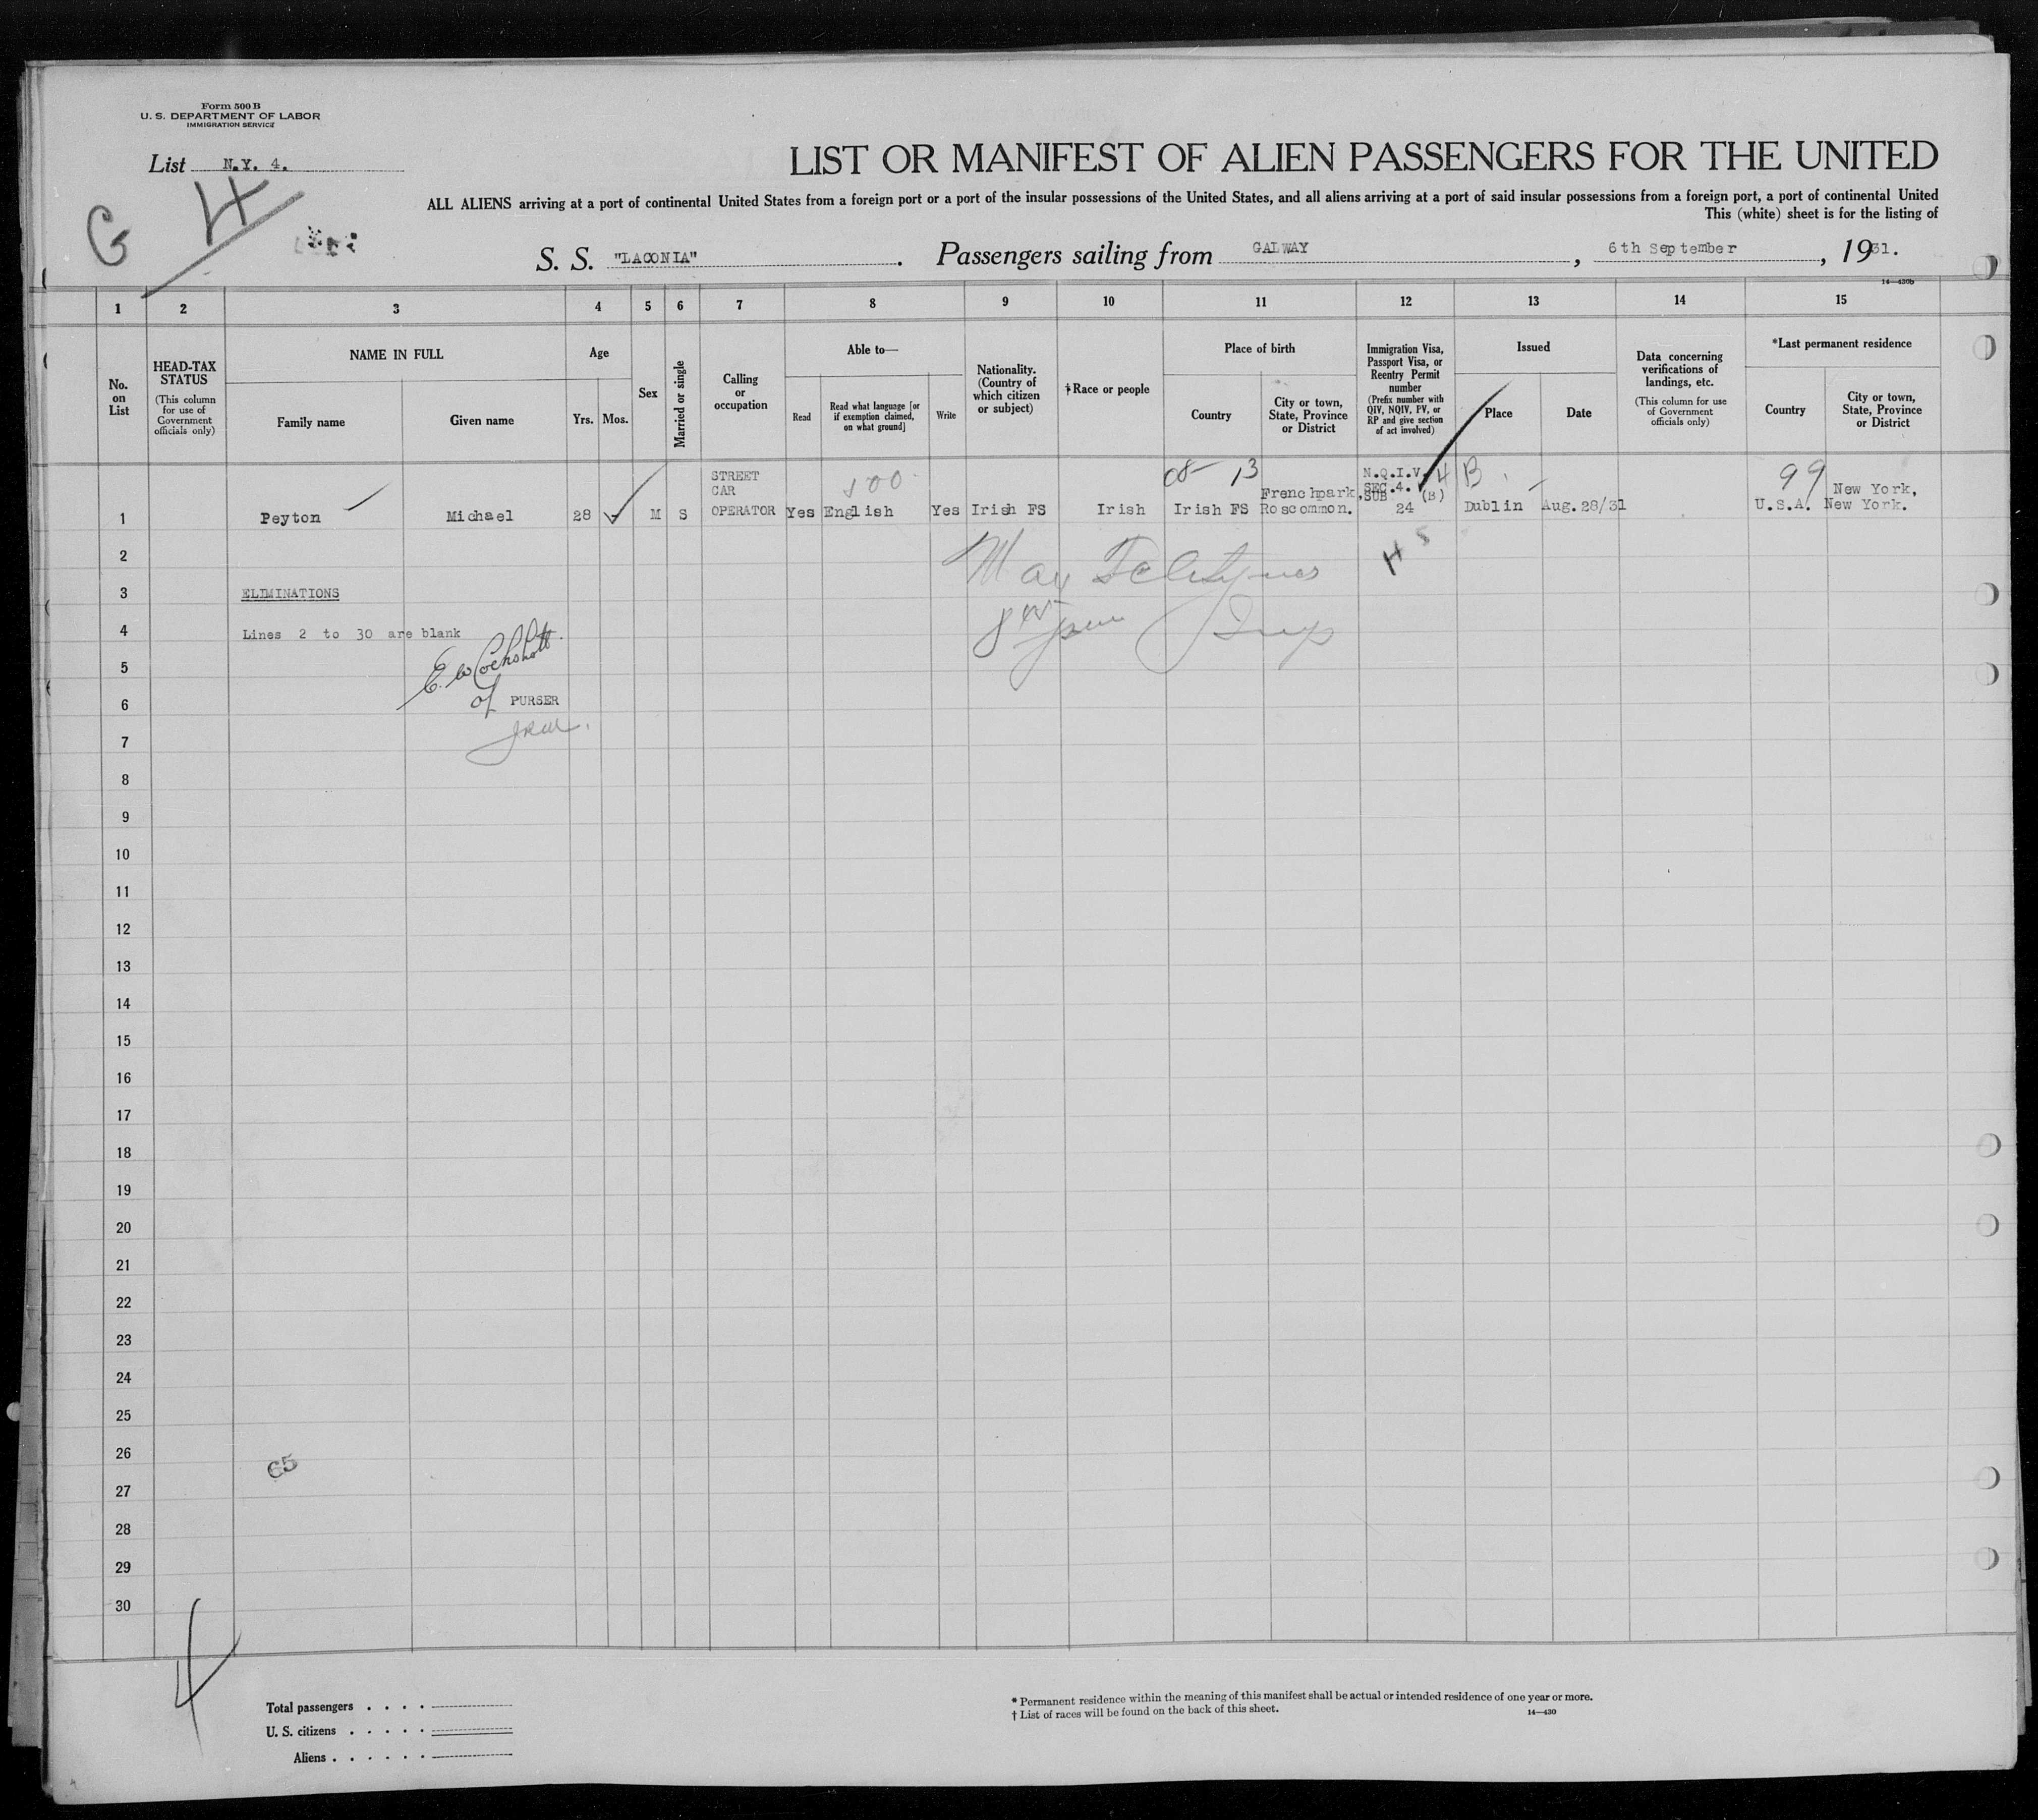 Form 500 B
U. S. DEPARTMENT OF LABOR
IMMIGRATION SERVICE
List N.Y. 4.
G 4
LIST OR MANIFEST OF ALIEN PASSENGERS FOR THE UNITED
ALL ALIENS arriving at a port of continental United States from a foreign port or a port of the insular possessions of the United States, and all aliens arriving at a port of said insular possessions from a foreign port, a port of continental United
This (white) sheet is for the listing of
S. S. "LACONIA". Passengers sailing from GALWAY, 6th September, 1931.
14—430b
1 2 3 4 5 6 7 8 9 10 11 12 13 14 15
No. on List
HEAD-TAX STATUS
(This column for use of Government officials only)
NAME IN FULL
Family name
Given name
Age
Yrs. Mos.
Sex
Married or single
Calling or occupation
Able to—
Read
Read what language [or if exemption claimed, on what ground]
Write
Nationality. (Country of which citizen or subject)
†Race or people
Place of birth
Country
City or town, State, Province or District
Immigration Visa, Passport Visa, or Reentry Permit number
(Prefix number with QIV, NQIV, PV, or RP and give section of act involved)
Issued
Place
Date
Data concerning verifications of landings, etc.
(This column for use of Government officials only)
*Last permanent residence
Country
City or town, State, Province or District
1 Peyton Michael 28 M S STREET CAR OPERATOR Yes English Yes Irish FS Irish Irish FS Frenchpark, Roscommon. N.Q.I.V. SEC.4. SUB (B) 24 Dublin Aug.28/31 U.S.A. New York, New York.
08 13
4 B
99
2
3 ELIMINATIONS
4 Lines 2 to 30 are blank
5
6 PURSER
7
8
9
10
11
12
13
14
15
16
17
18
19
20
21
22
23
24
25
26
65
27
28
29
30
4
Total passengers . . . .
U. S. citizens . . . . .
Aliens . . . . . .
* Permanent residence within the meaning of this manifest shall be actual or intended residence of one year or more.
† List of races will be found on the back of this sheet.
14—430